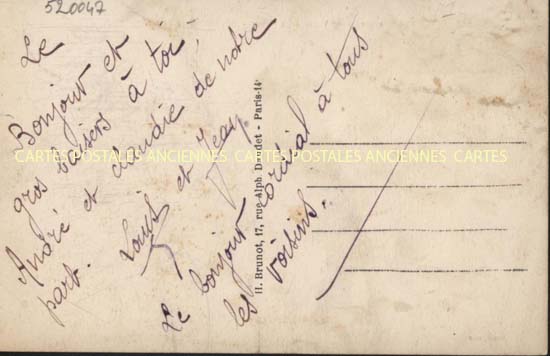 520047
Le
Bonjour et
gros baisers à toi,
André et claudie de notre
part.
Louis et Jean
Le bonjour cordial à tous
les voisins.
H. Brunot, 17, rue Alph. Daudet - Paris-14
CARTES POSTALES ANCIENNES CARTES POSTALES ANCIENNES CARTES